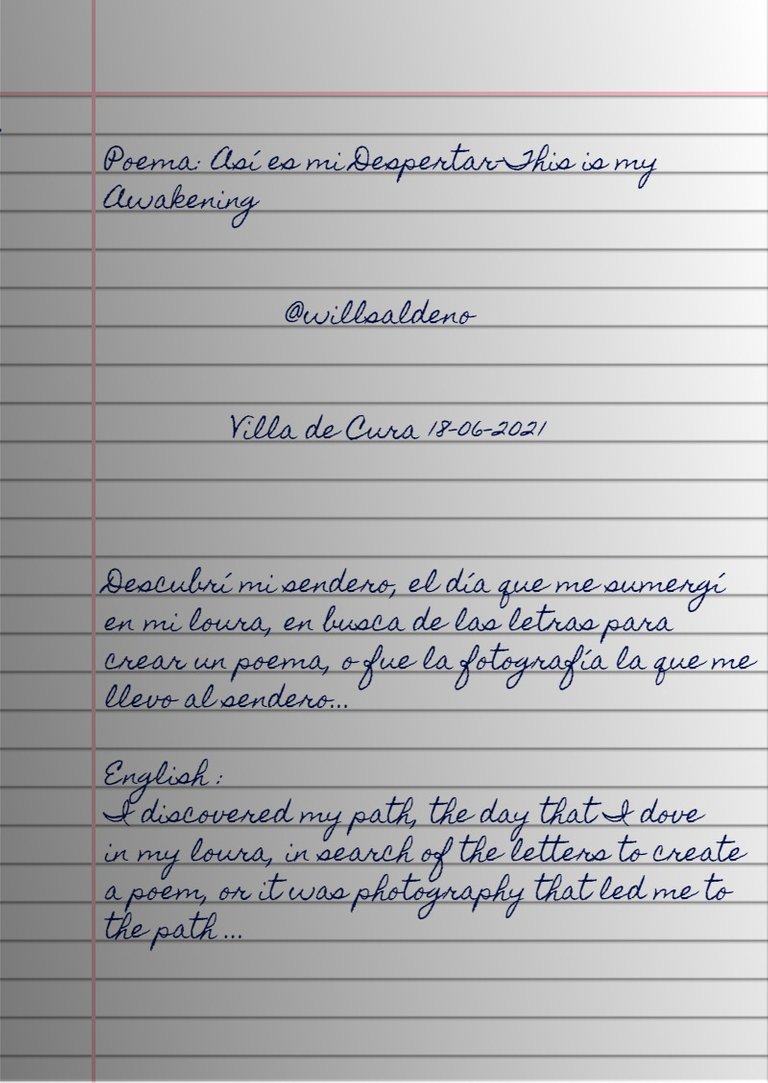 Poema: Así es mi Despertar-This is my
Awakening
@willsaldeno
Villa de Cura 18-06-2021
Descubrí mi sendero, el día que me sumergí
en mi loura, en busca de las letras para
crear un poema, o fue la fotografía la que me
llevo al sendero...
English :
I discovered my path, the day that I dove
in my loura, in search of the letters to create
a poem, or it was photography that led me to
the path ...